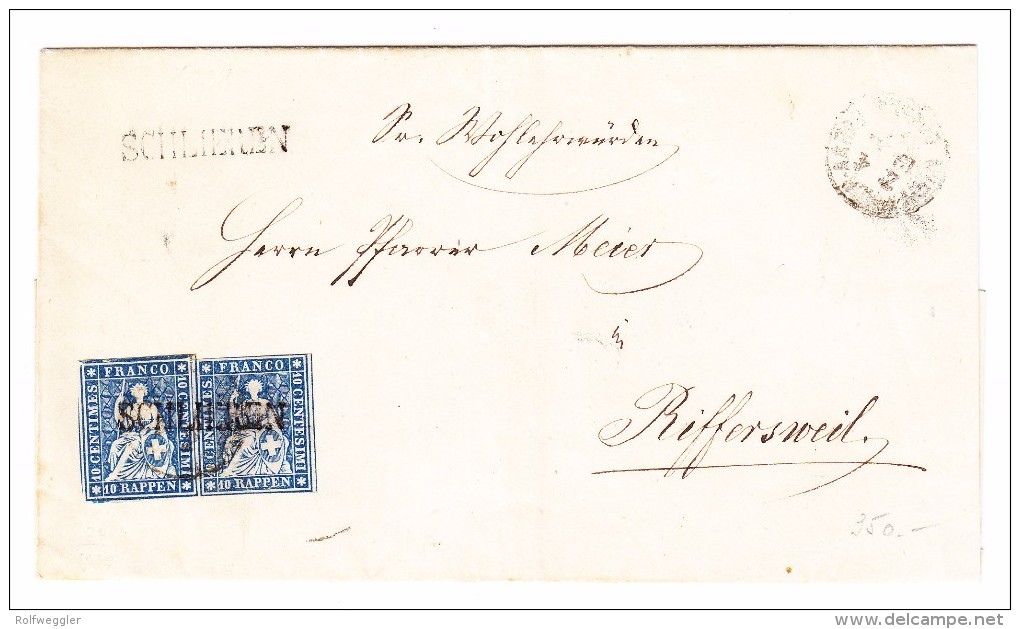 SCHLIEREN
Sr. Wohlehrwürden
Herrn Pfarrer Meier
in
Riffersweil.
FRANCO
10 CENTIMES
10 CENTESIMI
10 RAPPEN
FRANCO
10 CENTIMES
10 CENTESIMI
10 RAPPEN
SCHLIEREN
350.-
Rolfweggler
delcampe.net